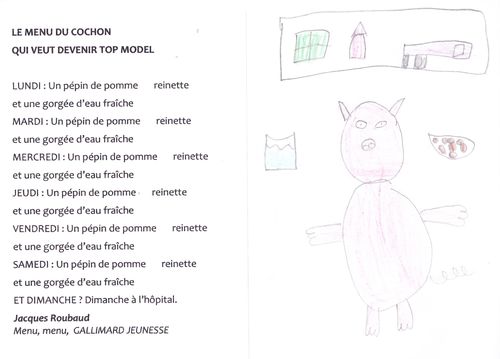 LE MENU DU COCHON
QUI VEUT DEVENIR TOP MODEL
LUNDI : Un pépin de pomme reinette
et une gorgée d'eau fraîche
MARDI : Un pépin de pomme reinette
et une gorgée d'eau fraîche
MERCREDI : Un pépin de pomme reinette
et une gorgée d'eau fraîche
JEUDI : Un pépin de pomme reinette
et une gorgée d'eau fraîche
VENDREDI : Un pépin de pomme reinette
et une gorgée d'eau fraîche
SAMEDI : Un pépin de pomme reinette
et une gorgée d'eau fraîche
ET DIMANCHE ? Dimanche à l'hôpital.
Jacques Roubaud
Menu, menu, GALLIMARD JEUNESSE